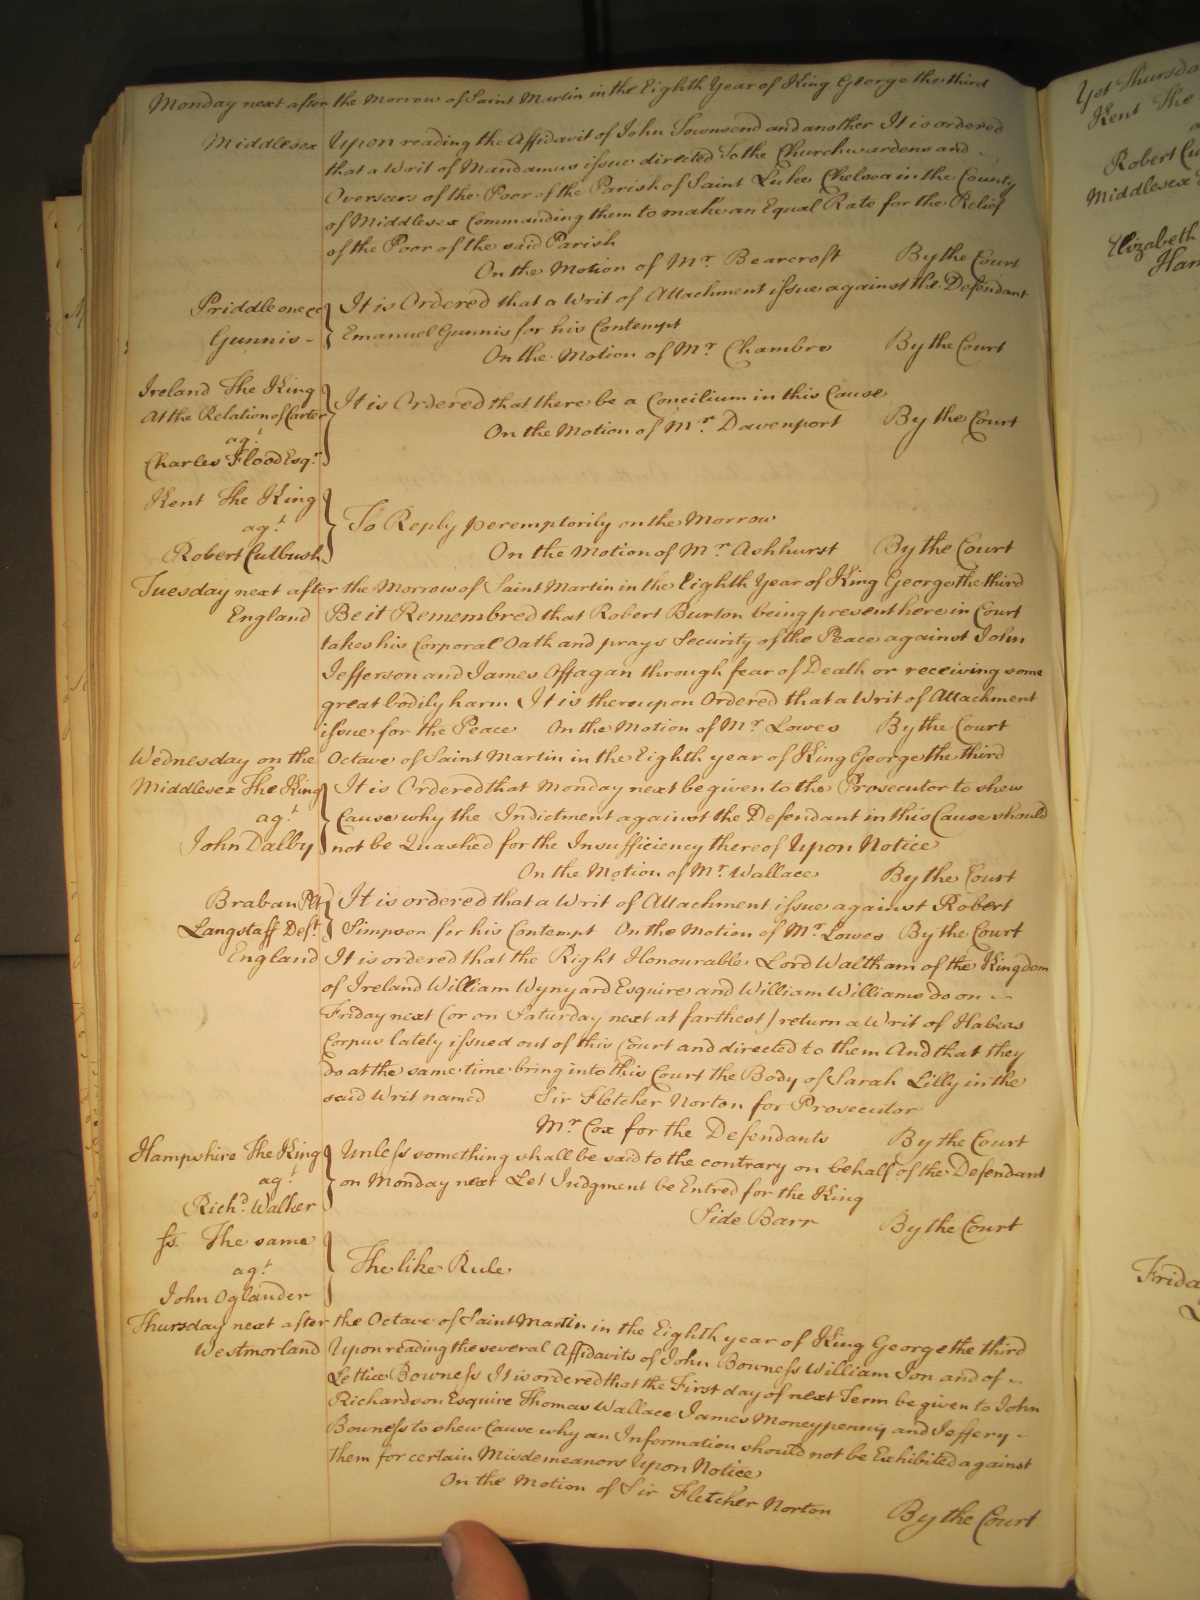 Monday next after the Morrow of Saint Martin in the Eighth Year of King George the third
Middlesex Upon reading the Affidavit of John Townsend and another It is ordered
that a Writ of Mandamus issue directed To the Churchwardens and
Overseers of the Poor of the Parish of Saint Luke Chelsea in the County
of Middlesex Commanding them to make an Equal Rate for the Relief
of the Poor of the said Parish
On the Motion of Mr. Bearcroft By the Court
Priddle one &c It is Ordered that a Writ of Attachment issue against the Defendant
Gunnis - Emanuel Gunnis for his Contempt
On the Motion of Mr. Chambre By the Court
Ireland The King
At the Relation of Carter It is Ordered that there be a Concilium in this Cause
agt. On the Motion of Mr. Davenport By the Court
Charles Flood Esqr.
Kent The King
agt. To Reply peremptorily on the Morrow
Robert Cutbush On the Motion of Mr. Ashhurst By the Court
Tuesday next after the Morrow of Saint Martin in the Eighth Year of King George the third
England Be it Remembred that Robert Burton being present here in Court
takes his Corporal Oath and prays Security of the Peace against John
Jefferson and James Offagan through fear of Death or receiving some
great bodily harm It is thereupon Ordered that a Writ of Attachment
issue for the Peace On the Motion of Mr. Lowes By the Court
Wednesday on the Octave of Saint Martin in the Eighth year of King George the third
Middlesex The King It is Ordered that Monday next be given to the Prosecutor to shew
agt. Cause why the Indictment against the Defendant in this Cause should
John Dalby not be Quashed for the Insufficiency thereof Upon Notice
On the Motion of Mr. Wallace By the Court
Braban Plt It is ordered that a Writ of Attachment issue against Robert
Langstaff Deft. Simpson for his Contempt On the Motion of Mr. Lowes By the Court
England It is ordered that the Right Honourable Lord Waltham of the Kingdom
of Ireland William Wynyard Esquire and William Williams do on
Friday next (or on Saturday next at farthest) return a Writ of Habeas
Corpus lately issued out of this Court and directed to them And that they
do at the same time bring into this Court the Body of Sarah Lilly in the
said Writ named Sir Fletcher Norton for Prosecutor
Mr. Cox for the Defendants By the Court
Hampshire The King Unless something shall be said to the contrary on behalf of the Defendant
agt. on Monday next Let Judgment be Entred for the King
Richd. Walker Side Barr By the Court
ss. The same
agt. The like Rule
John Oglander
Thursday next after the Octave of Saint Martin in the Eighth year of King George the third
Westmorland Upon reading the several Affidavits of John Bowness William Ion and of
Lettice Bowness It is ordered that the First day of next Term be given to John
Richardson Esquire Thomas Wallace James Moneypenny and Jeffery -
Bowness to shew Cause why an Information should not be Exhibited against
them for certain Misdemeanors Upon Notice
On the Motion of Sir Fletcher Norton By the Court
Yet Thursda
Kent The
Robert Cu
Middlesex
Elizabeth
Ham
Frida